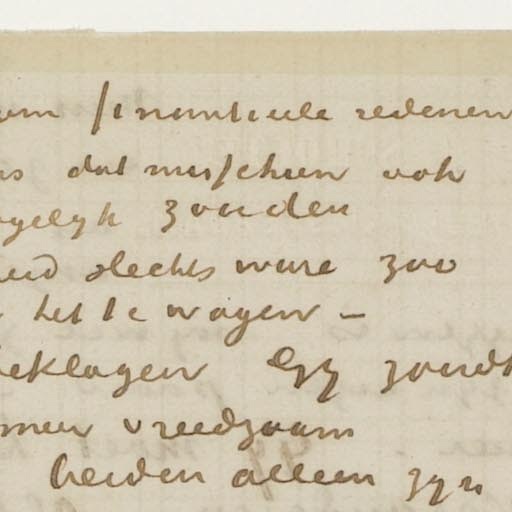 om financieele redenen
dat misschien ook
zouden
slechts ware zoo
het te wagen —
beklagen Gy zoudt
meer vreedzaam
beiden alleen zyn